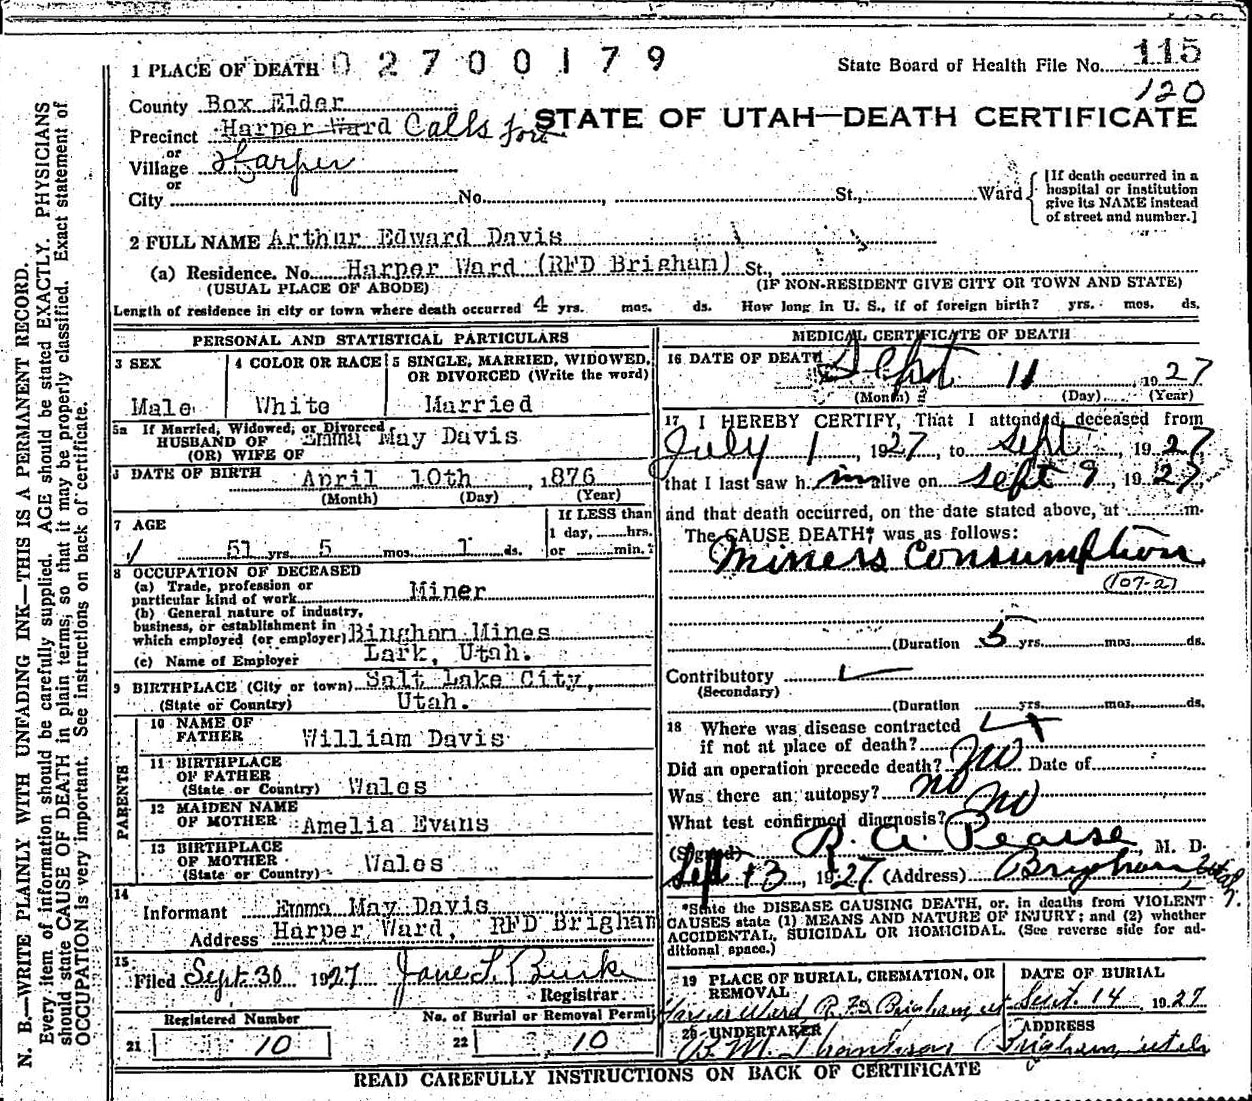 1 PLACE OF DEATH 02700179 State Board of Health File No. 115
120
County Box Elder
STATE OF UTAH—DEATH CERTIFICATE
Precinct Harper Ward Calls Fort
or
Village Harper
or
City No. , St., Ward
[If death occurred in a
hospital or institution
give its NAME instead
of street and number.]
2 FULL NAME Arthur Edward Davis
(a) Residence. No. Harper Ward (RFD Brigham) St.,
(USUAL PLACE OF ABODE) (IF NON-RESIDENT GIVE CITY OR TOWN AND STATE)
Length of residence in city or town where death occurred 4 yrs. mos. ds. How long in U. S., if of foreign birth? yrs. mos. ds.
PERSONAL AND STATISTICAL PARTICULARS
3 SEX
Male
4 COLOR OR RACE
White
5 SINGLE, MARRIED, WIDOWED,
OR DIVORCED (Write the word)
Married
5a If Married, Widowed, or Divorced
HUSBAND OF Emma May Davis
(OR) WIFE OF
DATE OF BIRTH April 10th , 1876
(Month) (Day) (Year)
7 AGE
51 yrs. 5 mos. 1 ds.
If LESS than
1 day, hrs.
or min.?
8 OCCUPATION OF DECEASED
(a) Trade, profession or
particular kind of work Miner
(b) General nature of industry,
business, or establishment in
which employed (or employer) Bingham Mines
(c) Name of Employer Lark, Utah.
9 BIRTHPLACE (City or town) Salt Lake City,
(State or Country) Utah.
PARENTS
10 NAME OF
FATHER William Davis
11 BIRTHPLACE
OF FATHER
(State or Country) Wales
12 MAIDEN NAME
OF MOTHER Amelia Evans
13 BIRTHPLACE
OF MOTHER
(State or Country) Wales
14
Informant Emma May Davis
Address Harper Ward, RFD Brigham
15
Filed Sept 30 1927 Jane L. Burke
Registrar
Registered Number No. of Burial or Removal Permit
21 10 22 10
MEDICAL CERTIFICATE OF DEATH
16 DATE OF DEATH Sept 11 , 1927
(Month) (Day) (Year)
17 I HEREBY CERTIFY, That I attended deceased from
July 1, 1927, to Sept 1927,
that I last saw him alive on Sept 9, 1927,
and that death occurred, on the date stated above, at m.
The CAUSE DEATH* was as follows:
Miners Consumption
(107-a)
(Duration 5 yrs. mos. ds.
Contributory
(Secondary)
(Duration yrs. mos. ds.
18 Where was disease contracted
if not at place of death?
Did an operation precede death? No Date of
Was there an autopsy? no
What test confirmed diagnosis? no
(Signed) R. A. Pearse, M. D.
Sept 13, 1927 (Address) Brigham, Utah.
*State the DISEASE CAUSING DEATH, or, in deaths from VIOLENT
CAUSES state (1) MEANS AND NATURE OF INJURY; and (2) whether
ACCIDENTAL, SUICIDAL OR HOMICIDAL. (See reverse side for ad-
ditional space.)
19 PLACE OF BURIAL, CREMATION, OR
REMOVAL
Harper Ward Brigham
DATE OF BURIAL
Sept. 14 1927
20 UNDERTAKER
ADDRESS
Brigham, Utah
READ CAREFULLY INSTRUCTIONS ON BACK OF CERTIFICATE
N. B.—WRITE PLAINLY WITH UNFADING INK—THIS IS A PERMANENT RECORD.
Every item of information should be carefully supplied. AGE should be stated EXACTLY. PHYSICIANS
should state CAUSE OF DEATH in plain terms, so that it may be properly classified. Exact statement of
OCCUPATION is very important. See instructions on back of certificate.